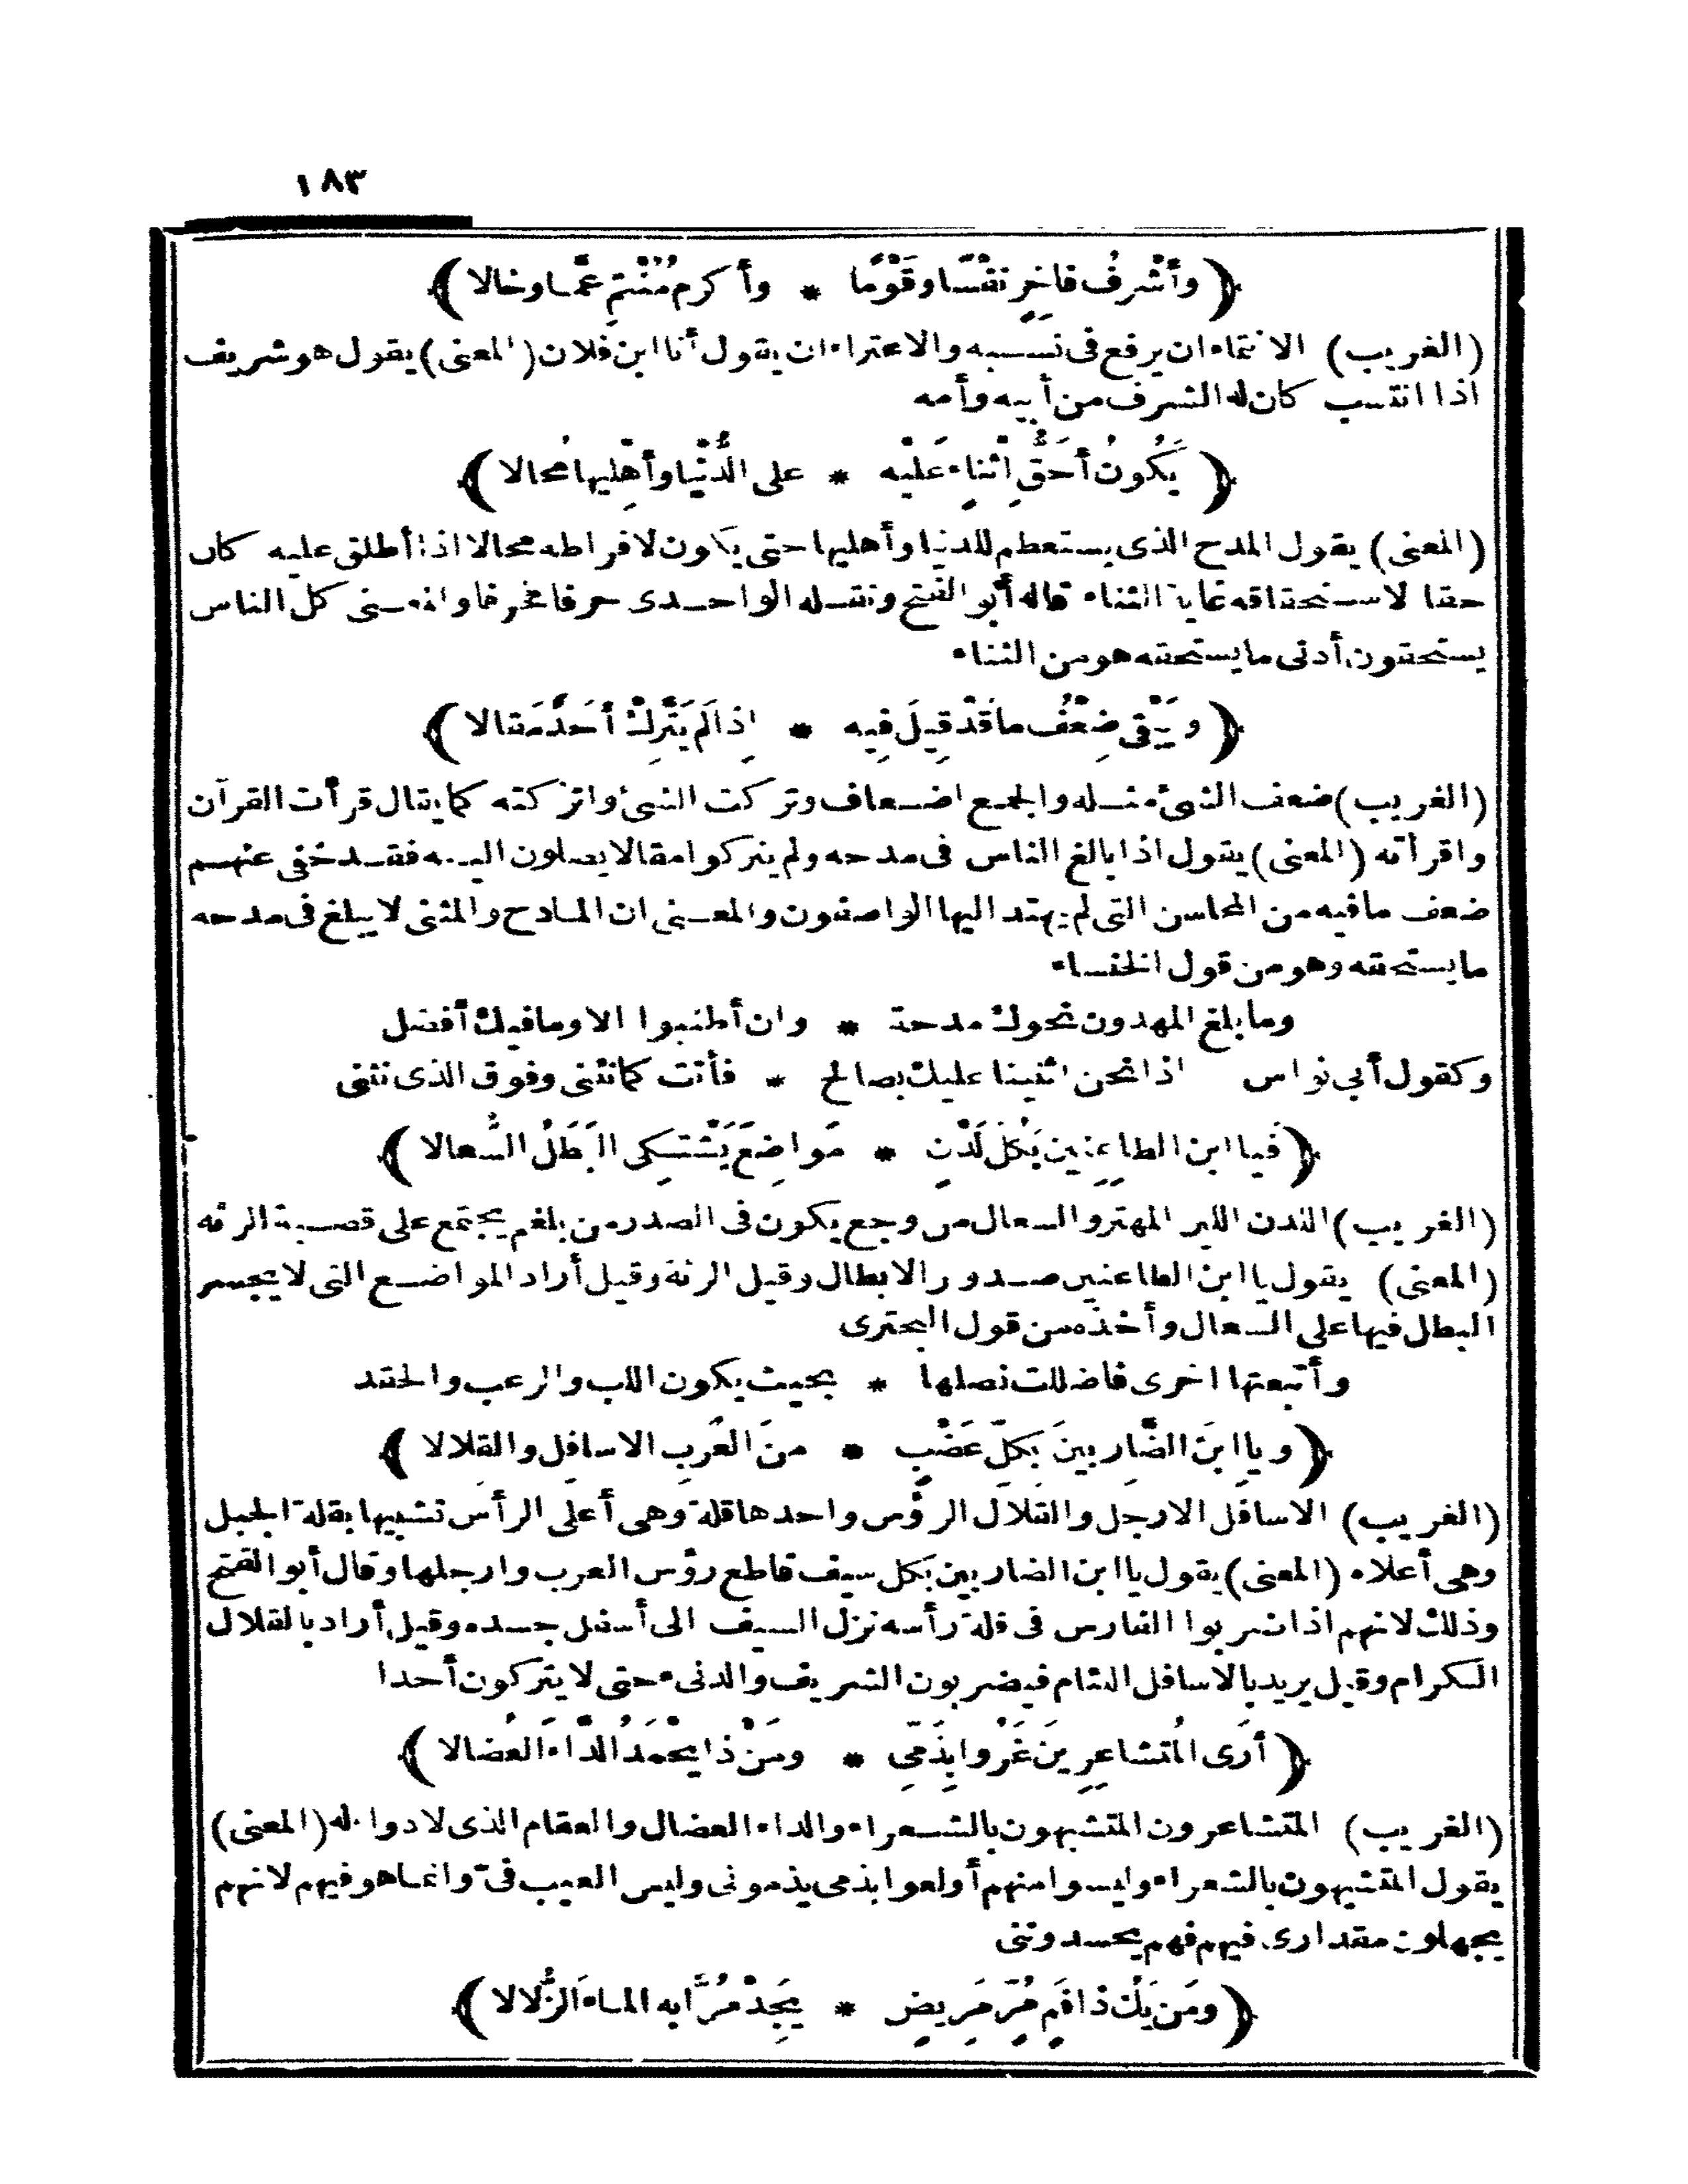 ١٨٣
﴿وأَشْرفُ فاخِرٍ نَفْسًا وقَوْمًا * وأكرم مُنْتمٍ عمَّا وخالا﴾
(الغريب) الانتماء ان يرفع فى نسبه والاعتزاء ان يقول أنا ابن فلان (المعنى) يقول هو شريف
اذا انتسب كان له الشرف من أبيه وأمه
﴿يَكُونُ أَحَقُّ اِثْناءٍ عَلَيْه * على الدُّنْيا وأهْلِيها مُحالا﴾
(المعنى) يقول المدح الذى يستعظم للدنيا وأهليها حتى يكون لافراطه محالا اذا أطلق عليه كان
حقا لاستحقاقه غاية الثناء قاله أبو الفتح ونقله الواحدى حرفا فحرفا والمعنى كل الناس
يستحقون أدنى ما يستحقه هو من الثناء
﴿ويَبْقى ضِعْفُ ما قَدْ قِيلَ فيه * اِذا لَم يَتَّرِكْ أَحَدٌ مَقالا﴾
(الغريب) ضعف الشئ مثله والجمع اضعاف وتركت الشئ واتركته كما يقال قرأت القرآن
واقرأته (المعنى) يقول اذا بالغ الناس فى مدحه ولم يتركوا مقالا يصلون اليه فقد خفى عنهم
ضعف ما فيه من المحاسن التى لم يهتد اليها الواصفون والمعنى ان المادح والمثنى لا يبلغ فى مدحه
ما يستحقه وهو من قول الخنساء
وما بلغ المهدون نحوك مدحة * وان أطنبوا الا وما فيك أفضل
وكقول أبى نواس اذا نحن اثنينا عليك بصالح * فأنت كما نثنى وفوق الذى نثنى
﴿فَيا ابن الطاعِنِين بكُلِّ لَدْنٍ * مَواضِعَ يَشْتَكِى البَطَلُ السُّعالا﴾
(الغريب) اللدن اللين المهتز والسعال من وجع يكون فى الصدر من بلغم يجتمع على قصبة الرئة
(المعنى) يقول يا ابن الطاعنين صدور الابطال وقيل الرئة وقيل أراد المواضع التى لا يتجسر
البطل فيها على السعال وأخذه من قول البحترى
وأتبعتها اخرى فاضللت نصلها * بحيث يكون اللب والرعب والحقد
﴿ويا ابنَ الضَّارِبينَ بكلّ عَضْبٍ * منَ العَربِ الاسافِل والقلالا﴾
(الغريب) الاسافل الارجل والقلال الرؤس واحدها قلة وهى أعلى الرأس تشبيها بقلة الجبل
وهى أعلاه (المعنى) يقول يا ابن الضاربين بكل سيف قاطع رؤس العرب وارجلها وقال أبو الفتح
وذلك لانهم اذا ضربوا الفارس فى قلة رأسه نزل السيف الى أسفل جسده وقيل أراد بالقلال
الكرام وقيل يريد بالاسافل اللئام فيضربون الشريف والدنىء حتى لا يتركون أحدا
﴿أَرَى المُتشاعِرِينَ غَرُوا بِذَمِّى * ومَنْ ذا يحْمَدُ الدَّاءَ العُضالا﴾
(الغريب) المتشاعرون المتشبهون بالشعراء والداء العضال والعقام الذى لا دواء له (المعنى)
يقول المتشبهون بالشعراء وليسوا منهم أولعوا بذمى يذمونى وليس العيب فىّ وانما هو فيهم لانهم
يجهلون مقدارى فيهم فهم يحسدوننى
﴿ومَن يَكُ ذا فَمٍ مُرٍّ مَرِيضٍ * يَجِدْ مُرًّا به الماءَ الزُّلالا﴾